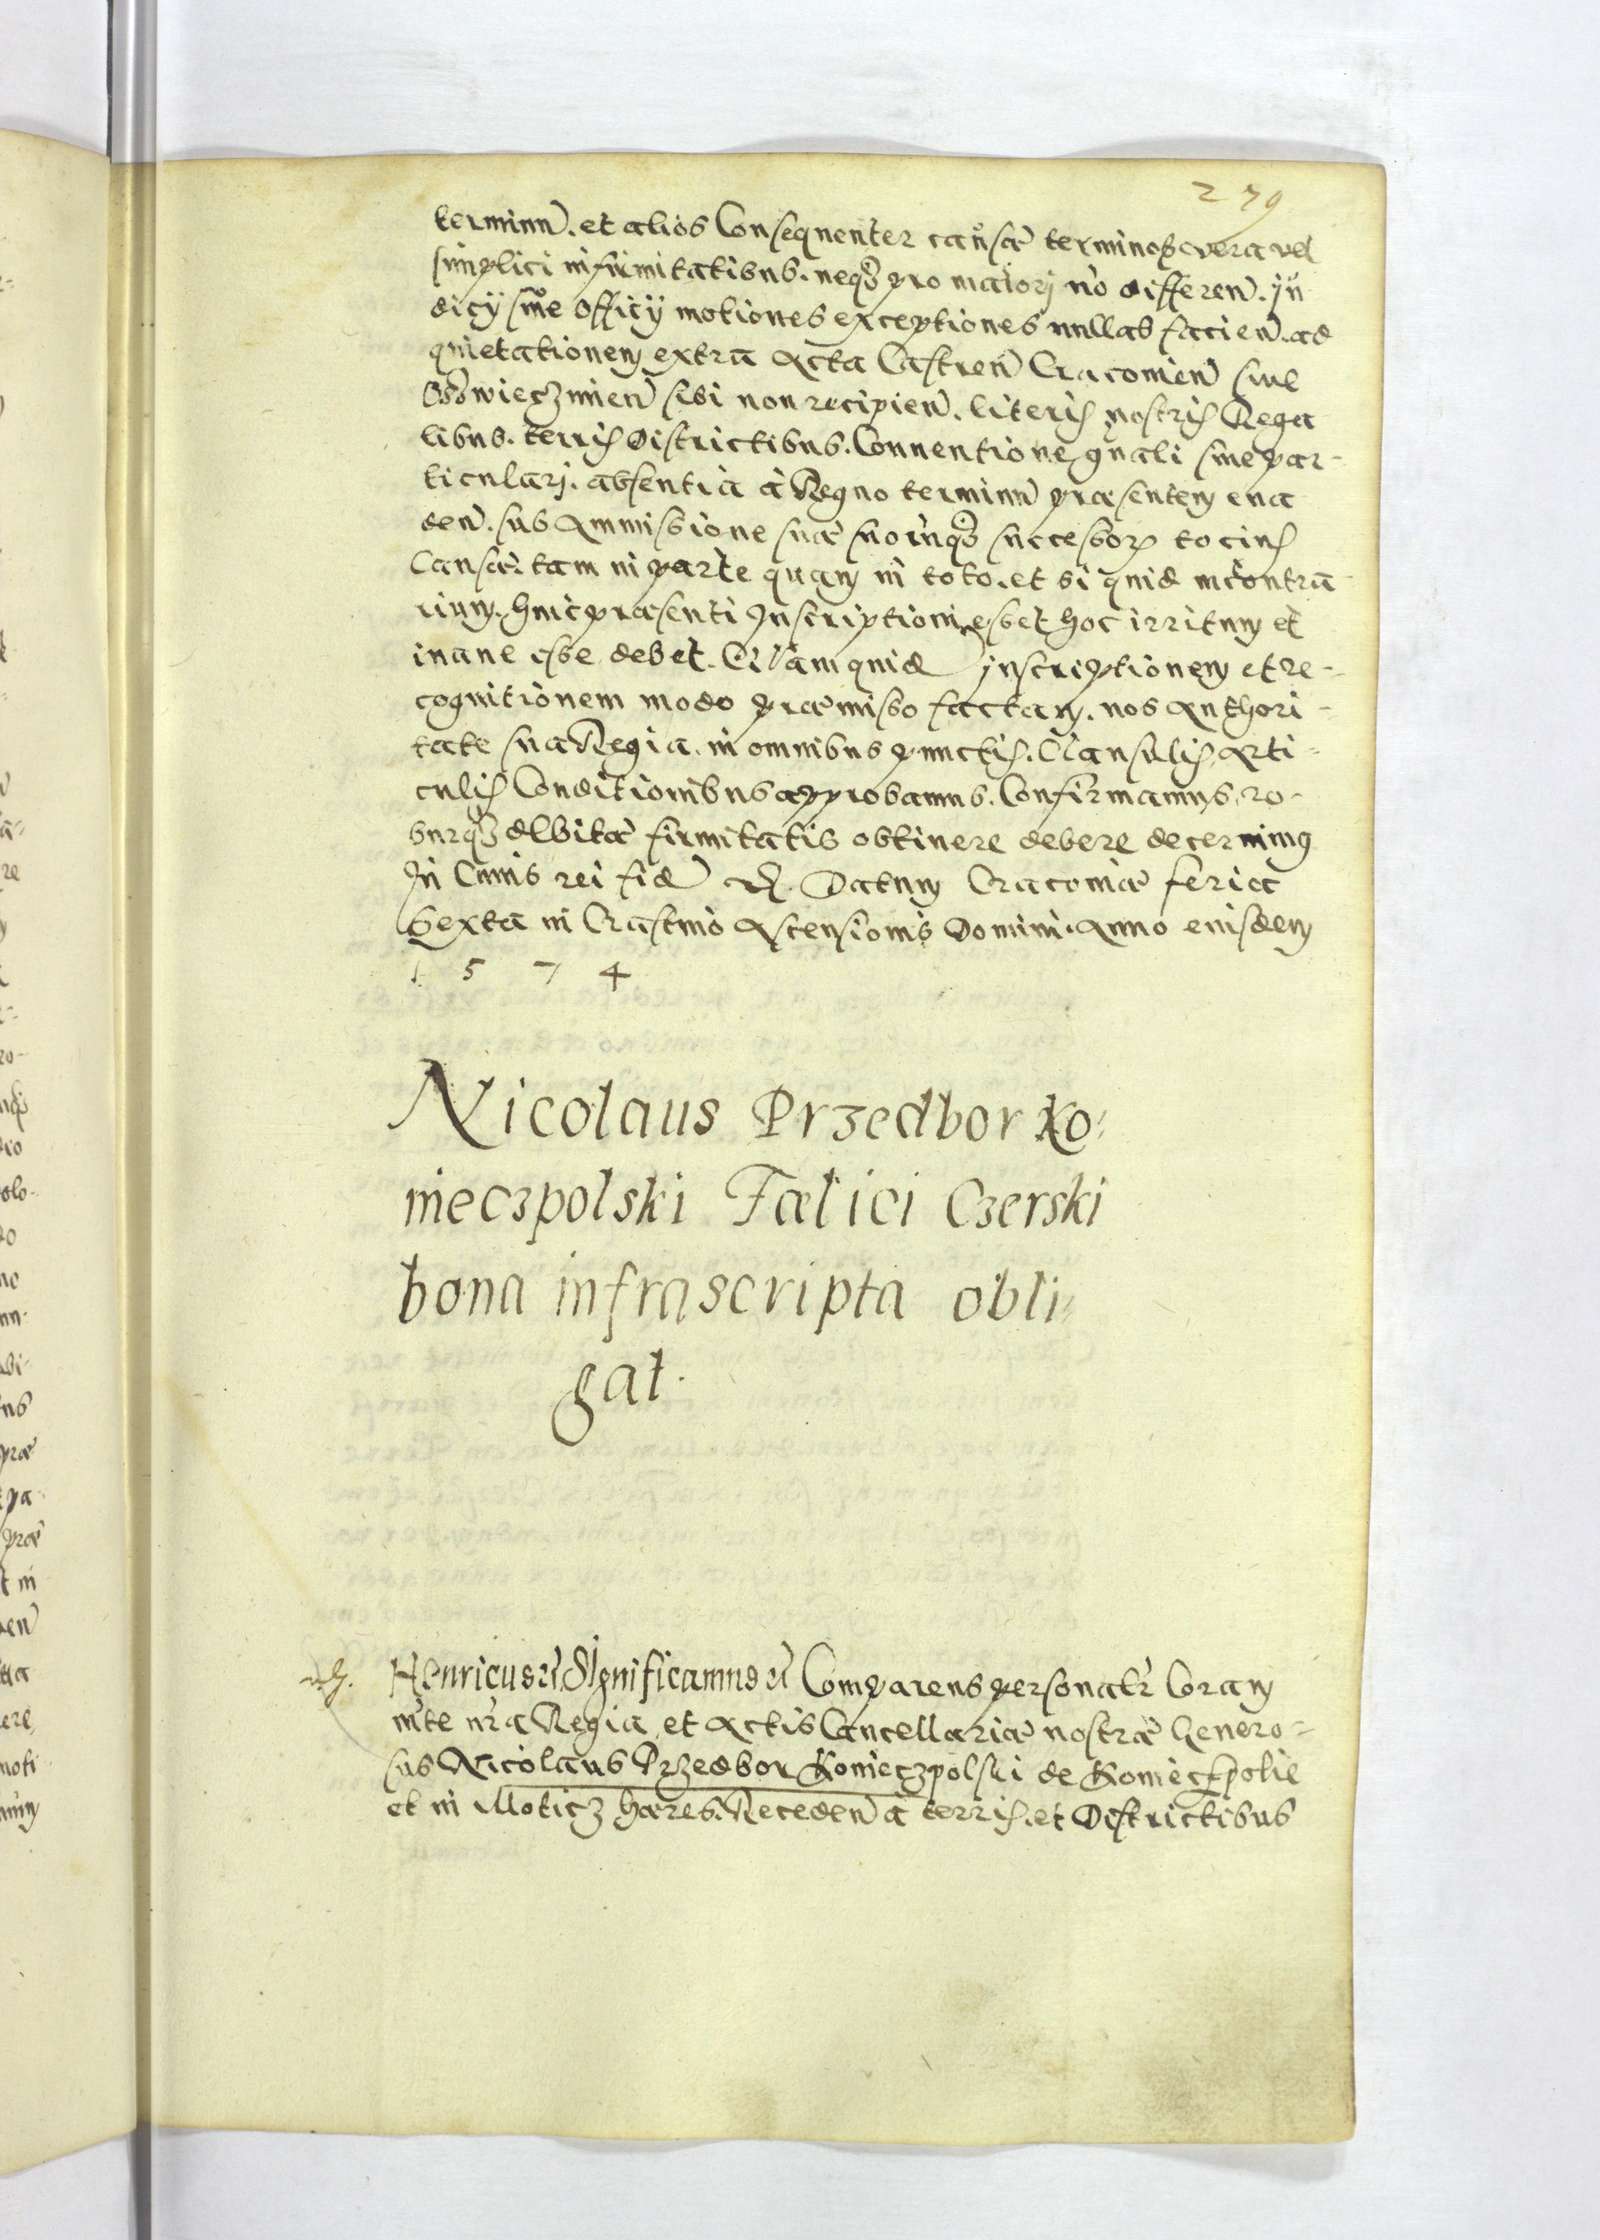 279
terminũ. et alios Consequenter causæ terminos, vera vel
simplici infirmitatibus. neque pro maiorj nõ differeñ. ju
dicÿ siue Officÿ motiones exceptiones nullas facieñ. ad
quietationem extra Acta Castreñ Cracouieñ siue
Osswieczimeñ sibi non recipieñ. literis nostris Rega
libus. terris Districtibus. Conuentione gnali siue par-
ticularj. absentia à Regno terminũ præsentem eua
deñ. sub Ammissione suæ suorũque successorũ tocius
Causæ tam in parte quam in toto. et si quid in contra-
rium. huic præsenti Inscriptioni esset hoc irritum et
inane esse debet. Quamquid inscriptionem et re-
cognitionem modo præmisso factam. nos Authori-
tate sua Regia. in omnibus punctis. Clausulis Arti-
culis Conditionibus approbamus. Confirmamus, ro-
burque debitæ firmitatis obtinere debere decernimus
In Cuius rei fid Datum Cracouiæ feria
Sexta in Crastino Ascensionis Domini. Anno eiusdem
1 5 7 4
Nicolaus Przedbor Ko-
nieczpolski Fælici Czerski
bona infrascripta obli-
gat.
Henricus Significamus Comparens personalr Coram
mte nra Regia et Actis Cancellariæ nostræ Genero-
sus Nicolaus Przedbor Konieczpolski de Konieczpolie
et in Moticz hæres. Recedeñ à terris. et Districtibus